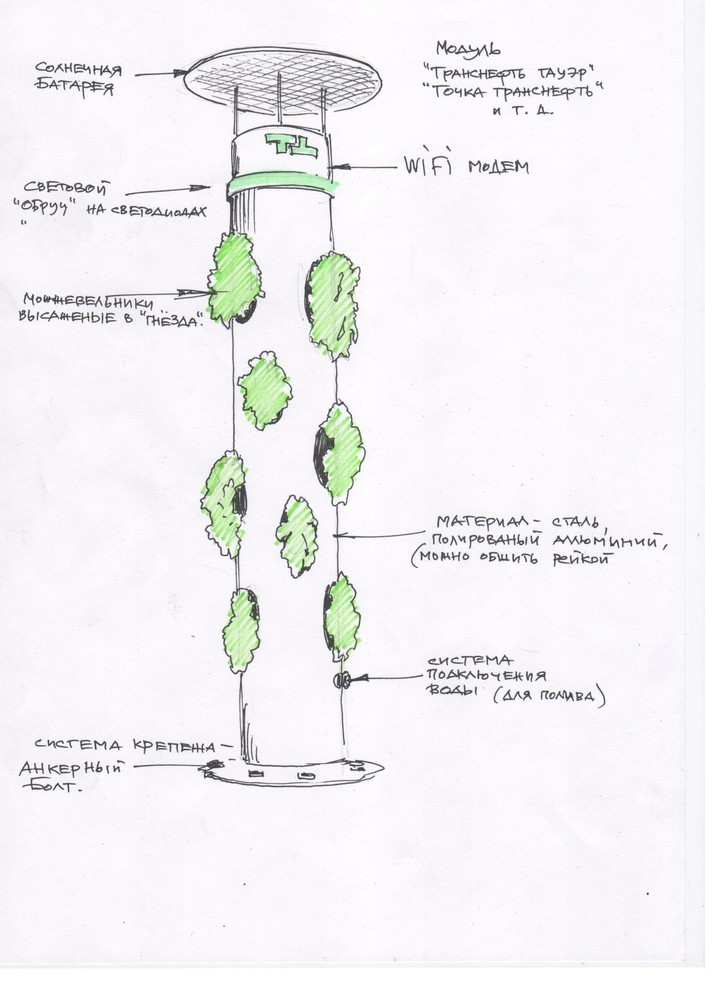 Модуль
"Транснефть Тауэр"
"Точка Транснефть"
и т. д.
Солнечная
батарея
WiFi модем
Световой
"обруч" на светодиодах
"
Можжевельники
высаженые в "гнёзда".
Материал – сталь,
полированый аллюминий,
(можно обшить рейкой
Система
подключения
воды (для полива)
Система крепежа –
анкерный
болт.